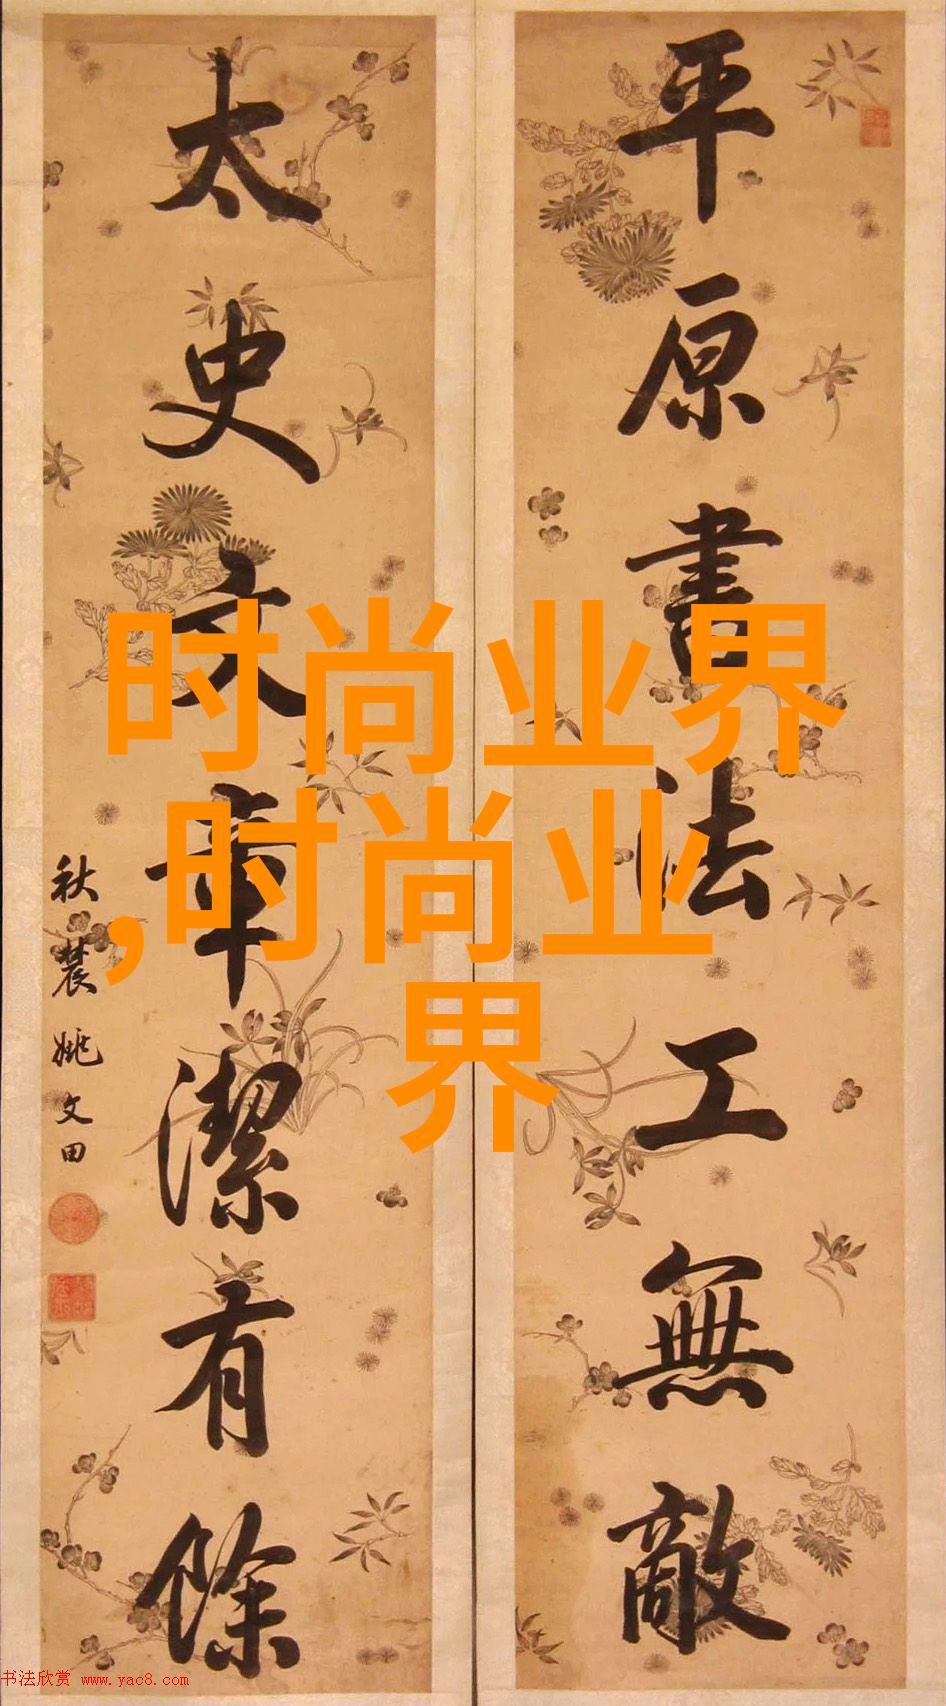 平原書法工無敵
太史文章潔有餘
秋農姚文田
时尚业界
,时尚业
界
书法欣赏 www.yac8.com